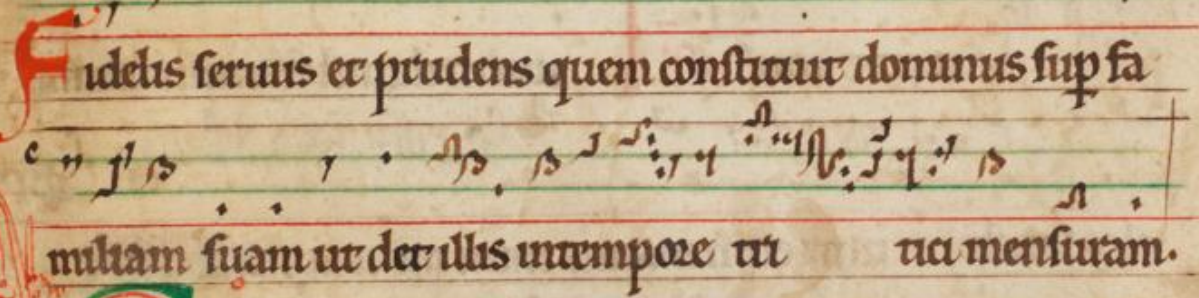 Fidelis seruus et prudens quem constituit dominus sup fa
c
miliam suam ut det illis intempore tri tici mensuram.